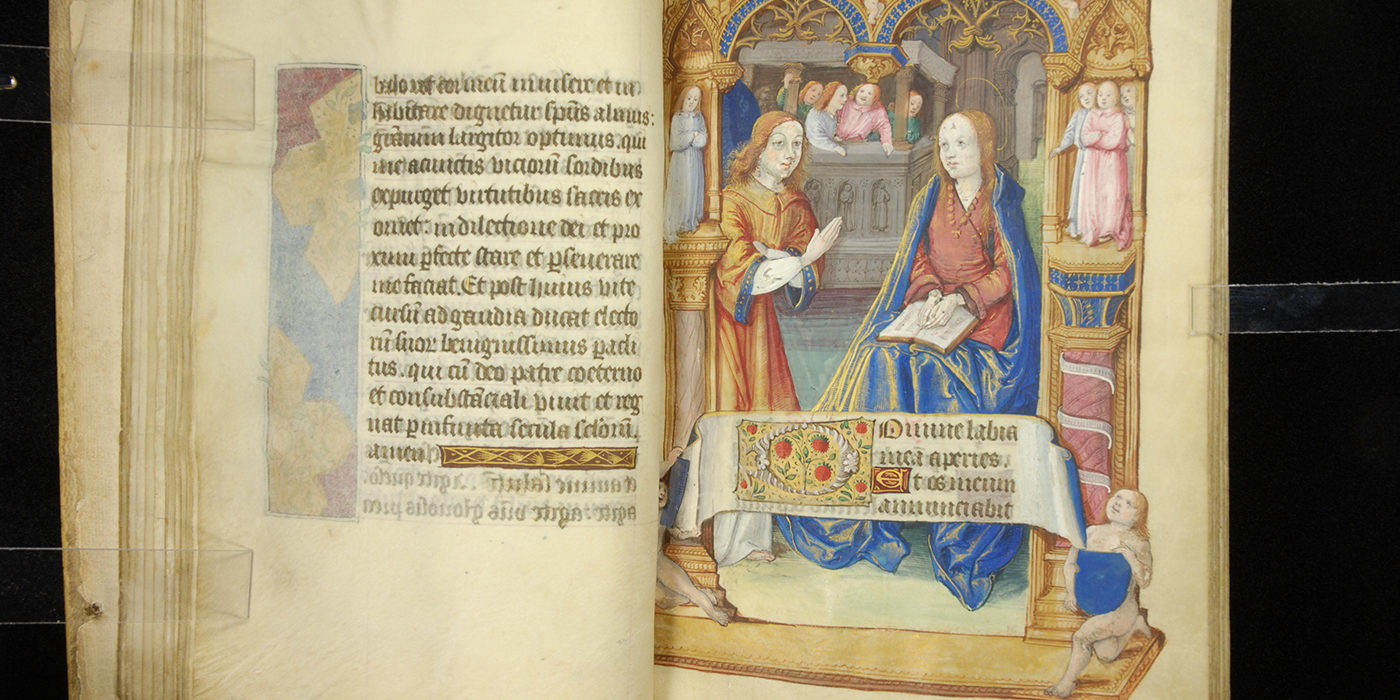 habitare dignetur sp̃us almus:
gr̃arum largitor optimus. qui
me a cunctis viciorũ sordibus
expurget virtutibus sacris ex
ornet: in dilectione dei et pro
ximi p̃fecte stare et p̃seuerare
me faciat. Et post huius vite
cursũ ad gaudia ducat electo
rũ suor benignissimus p̃acli
tus. qui cũ deo patre coeterno
et consubstãciali viuit et reg
nat p infinita secula sclorũ.
amen
Domine labia
mea aperies.
Et os meum
annunciabit